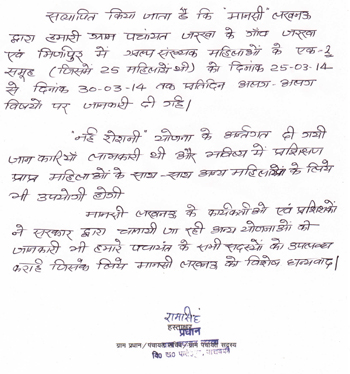 सत्यापित किया जाता है कि "मानसी" लखनऊ
द्वारा हमारी ग्राम पंचायत जास्वा के गाँव जास्वा
एवं मिर्जापुर में अल्प संख्यक महिलाओं के एक-2
समूह (जिसमें 25 महिलायें थी) को दिनांक 25-03-14
से दिनांक 30-03-14 तक प्रतिदिन अलग-अलग
विषयों पर जानकारी दी गई।
"नई रोशनी" योजना के अर्न्तगत दी गयी
जानकारियाँ लाभकारी थी और भविष्य में प्रशिक्षण
प्राप्त महिलाओं के साथ-साथ अन्य महिलाओं के लिये
भी उपयोगी होगी
मानसी लखनऊ के कार्यकर्ताओं एवं प्रशिक्षकों
ने सरकार द्वारा चलायी जा रही अन्य योजनाओं की
जानकारी भी हमारे पंचायत के सभी सदस्यों को उपलब्ध
कराई जिसके लिये मानसी लखनऊ को विशेष धन्यवाद।
रामसिंह
हस्ताक्षर
प्रधान
ग्राम प्रधान/पंचायत सदस्य